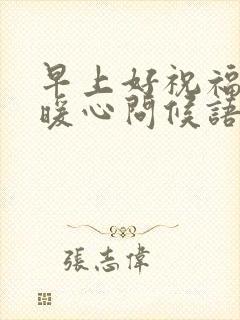 早上好祝福
暖心問候語
張志偉